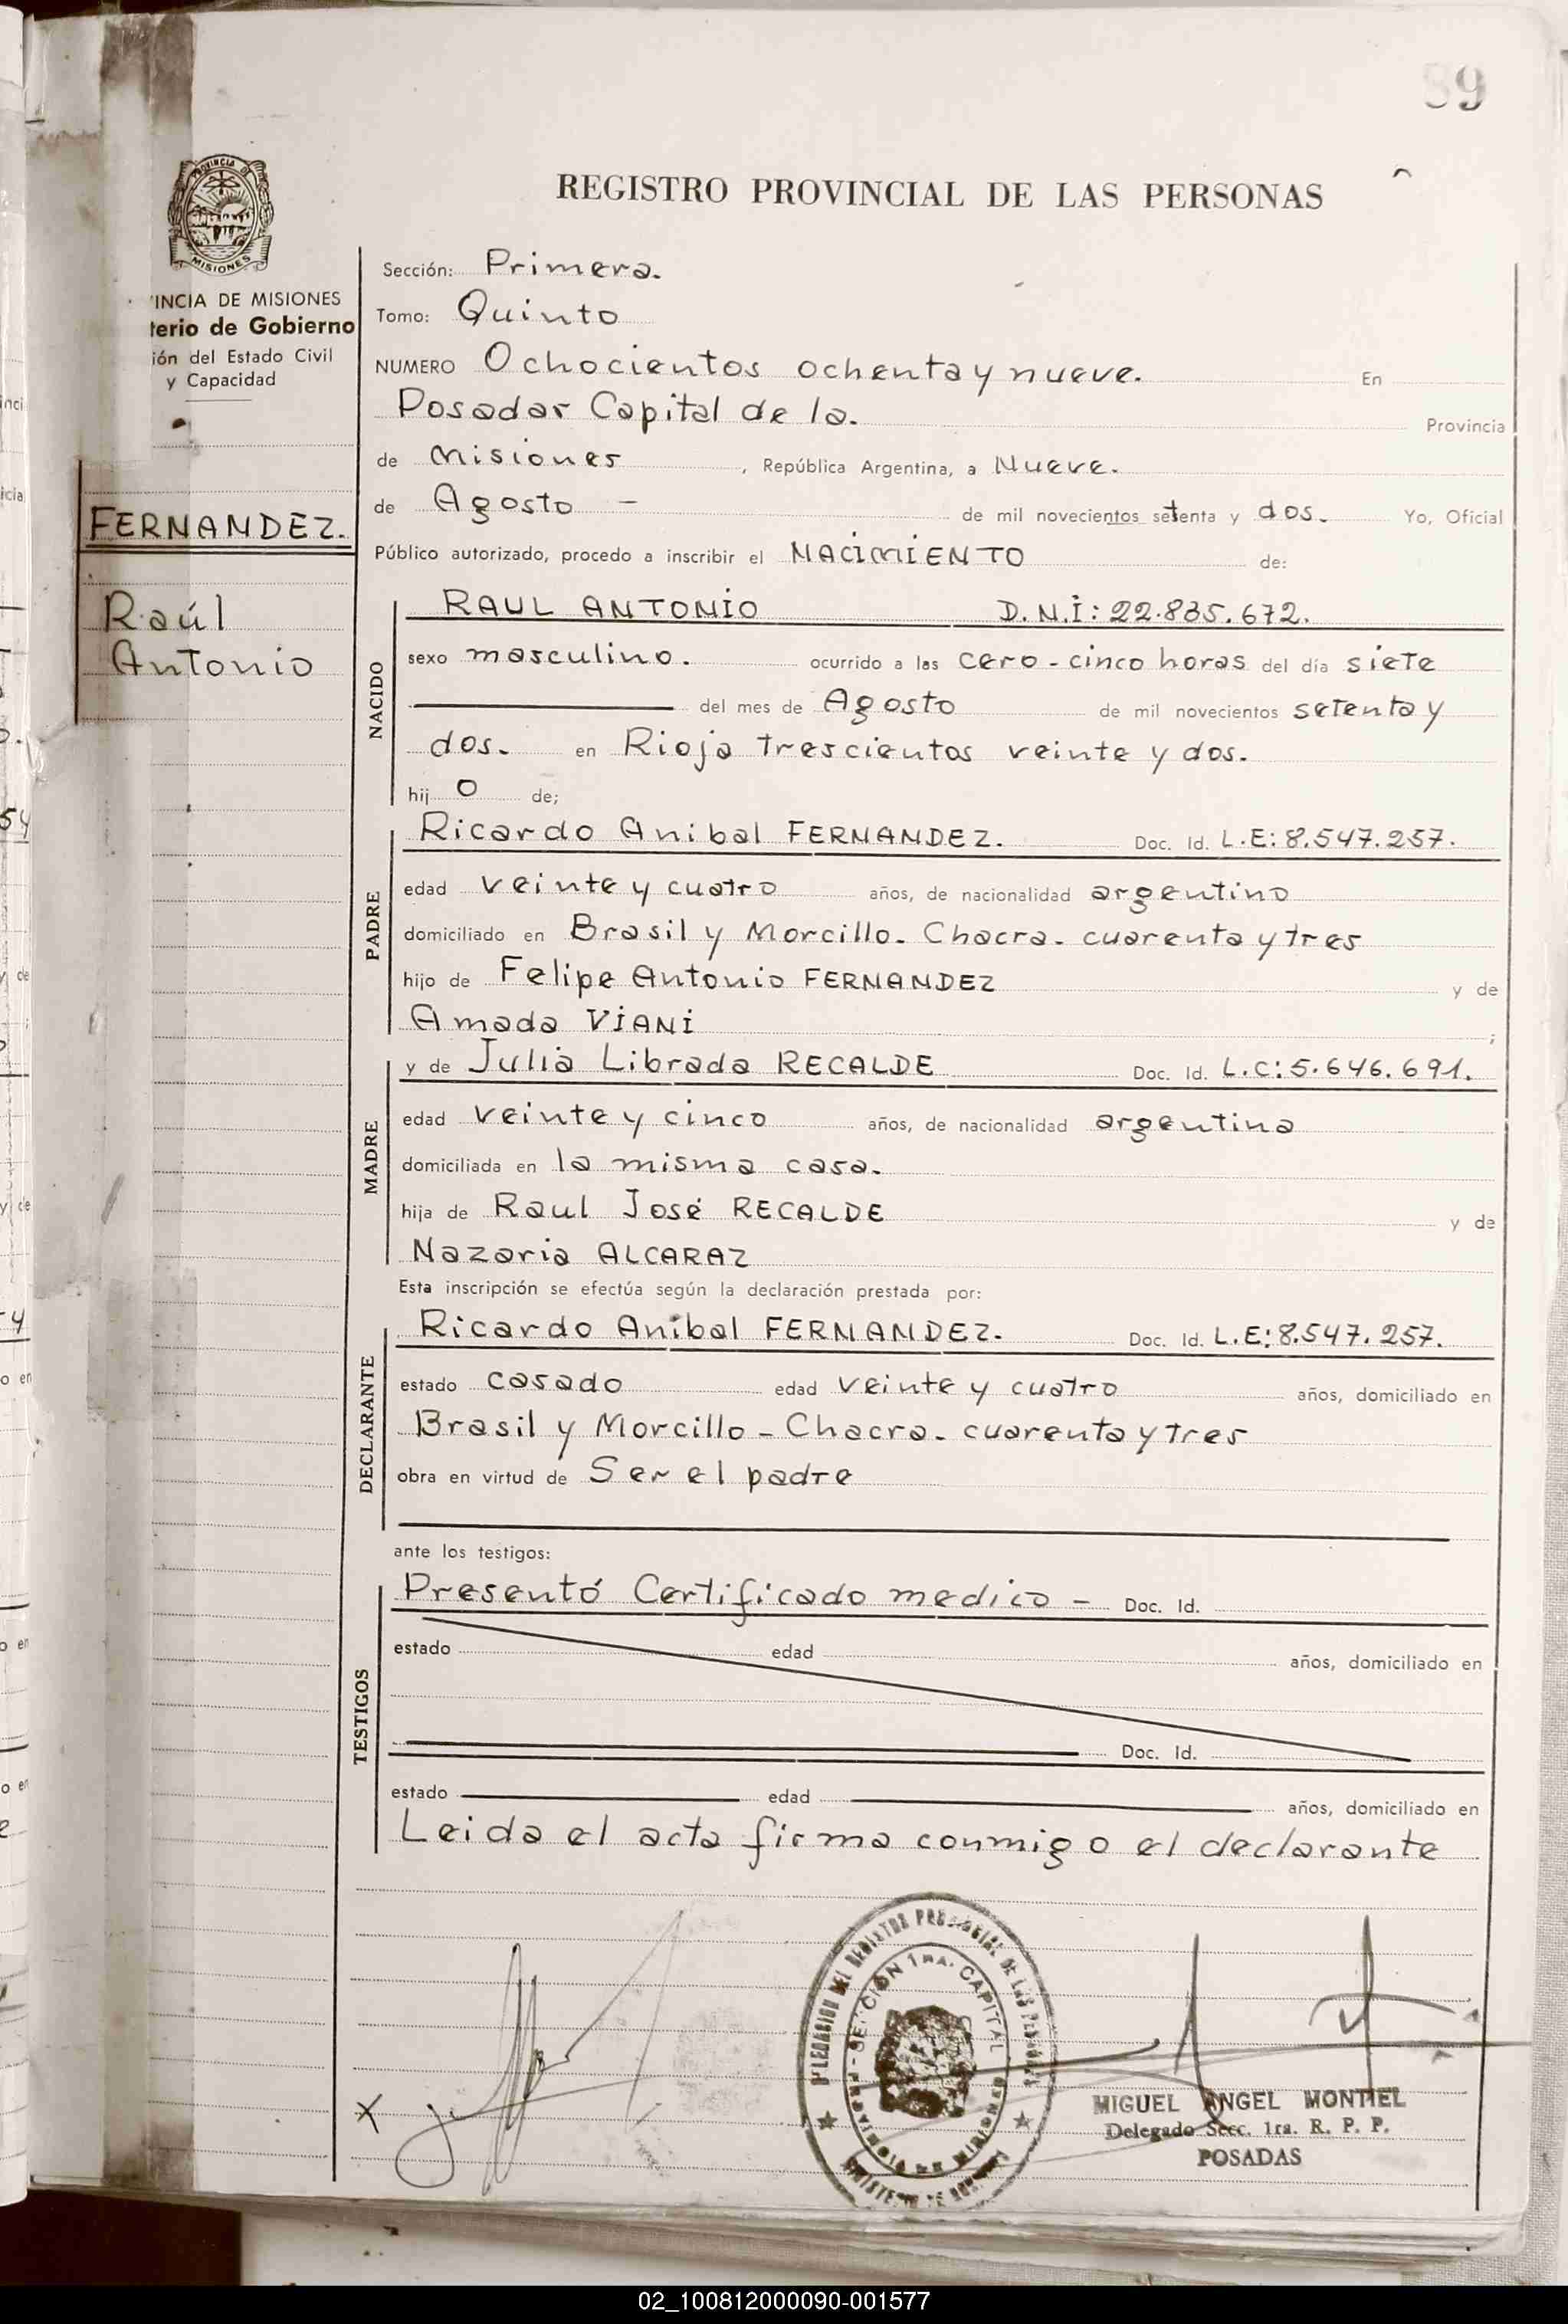 89
REGISTRO PROVINCIAL DE LAS PERSONAS
PROVINCIA DE
MISIONES
'INCIA DE MISIONES
terio de Gobierno
ión del Estado Civil
y Capacidad
FERNANDEZ.
Raúl
Antonio
Sección: Primera.
Tomo: Quinto
NUMERO Ochocientos ochenta y nueve. En
Posadas Capital de la. Provincia
de Misiones, República Argentina, a Nueve.
de Agosto - de mil novecientos setenta y dos. Yo, Oficial
Público autorizado, procedo a inscribir el NACIMIENTO de:
NACIDO
RAUL ANTONIO D.N.I: 22.835.672.
sexo masculino. ocurrido a las cero-cinco horas del día siete
del mes de Agosto de mil novecientos setenta y
dos. en Rioja trescientos veinte y dos.
hij o de;
PADRE
Ricardo Anibal FERNANDEZ. Doc. Id. L.E: 8.547.257.
edad veinte y cuatro años, de nacionalidad argentino
domiciliado en Brasil y Morcillo. Chacra. cuarenta y tres
hijo de Felipe Antonio FERNANDEZ y de
Amada VIANI ;
MADRE
y de Julia Librada RECALDE Doc. Id. L.C: 5.646.691.
edad veinte y cinco años, de nacionalidad argentina
domiciliada en la misma casa.
hija de Raul José RECALDE y de
Nazaria ALCARAZ
Esta inscripción se efectúa según la declaración prestada por:
DECLARANTE
Ricardo Anibal FERNANDEZ. Doc. Id. L.E: 8.547.257.
estado casado edad veinte y cuatro años, domiciliado en
Brasil y Morcillo - Chacra. cuarenta y tres
obra en virtud de Ser el padre
ante los testigos:
TESTIGOS
Presentó Certificado medico - Doc. Id.
estado edad años, domiciliado en
Doc. Id.
estado edad años, domiciliado en
Leida el acta firma conmigo el declarante
X
SECCIÓN 1RA. CAPITAL
PROVINCIA DE MISIONES
MIGUEL ANGEL MONTIEL
Delegado Secc. 1ra. R. P. P.
POSADAS
02_100812000090-001577